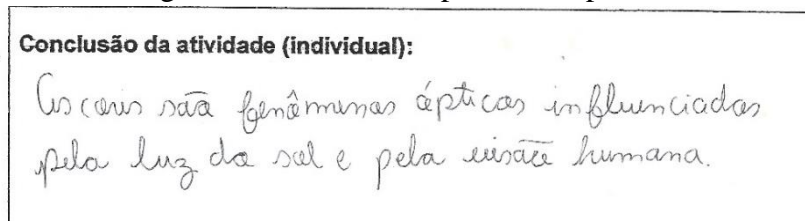 Conclusão da atividade (individual):
As cores são fenômenos ópticos influenciados
pela luz do sol e pela visão humana.